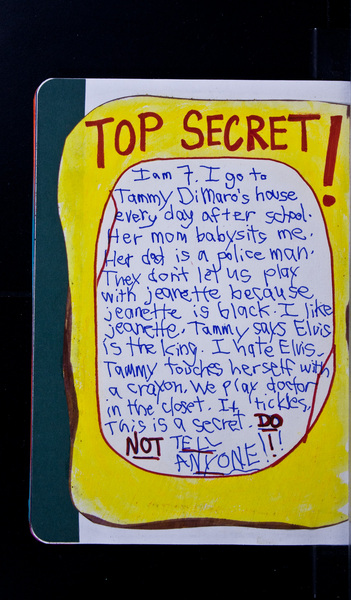 TOP SECRET!
I am 7. I go to
Tammy DiMaro's house
every day after school.
Her mom babysits me.
Her dad is a police man.
They dont let us play
with jeanette because
jeanette is black. I like
jeanette. Tammy says Elvis
is the king. I hate Elvis.
Tammy touches herself with
a crayon. We play doctor
in the closet. It tickles.
This is a secret. DO
NOT TELL
ANYONE!!!